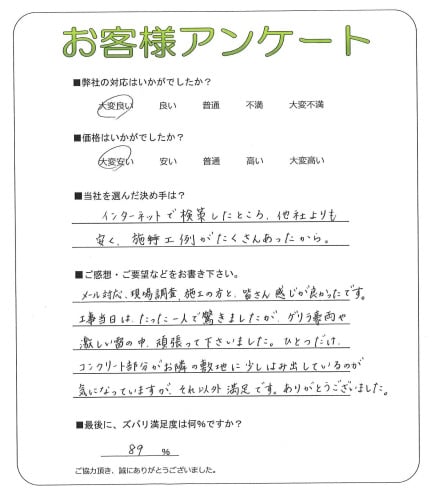 お客様アンケート
■弊社の対応はいかがでしたか？
大変良い 良い 普通 不満 大変不満
■価格はいかがでしたか？
大変安い 安い 普通 高い 大変高い
■当社を選んだ決め手は？
インターネットで検策したところ、他社よりも
安く、施工例がたくさんあったから。
■ご感想・ご要望などをお書き下さい。
メール対応、現場調査、施工の方と、皆さん感じが良かったです。
工事当日は、たった一人で驚きましたが、ゲリラ豪雨や
激しい雷の中、頑張って下さいました。ひとつだけ、
コンクリート部分がお隣の敷地に少しはみ出しているのが
気になっていますが、それ以外満足です。ありがとうございました。
■最後に、ズバリ満足度は何％ですか？
89 ％
ご協力頂き、誠にありがとうございました。